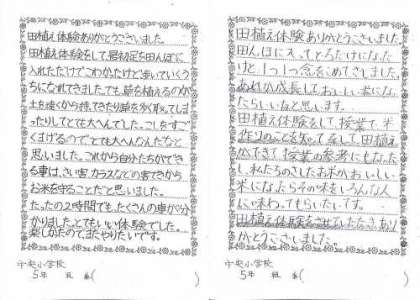 田植え体験ありがとうございました。
田植え体験をして、最初足を田んぼに
入れただけでこわかったけど歩いていくうち
になれてきました。でも、苗を植えるのが
土を遠くから持ってきたり苗を多く取ってしま
ったりしてとても大へんでした。こしをすご
くまげるのでとても大へんなんだなと
思いました。これから自分たちができ
る事は、さい害、カラスなどの害てきから
お米を守ることだと思いました。
たったの2時間でも、たくさんの事が分
かりました。とてもいい体験でした。
楽しかったので、またやりたいです。
中央小学校
5年 組 番( )
田植え体験ありがとうございました
田んぼに入ってどろだらけになた
けど1つ1つ念をこめてさしました。
あれが成長しておいしい米にな
たらいいなと思います。
田植え体験をして、授業で、米
作りのことを知って、そして、田植え
ができて、授業の参考にもなった
し、私たちのさしたお米がおいしい
米になったらその味をいろんな人
に味わってもらいたいです。
田植え体験をさせていただきあり
がとうございました。
中央小学校
5年 組 番( )